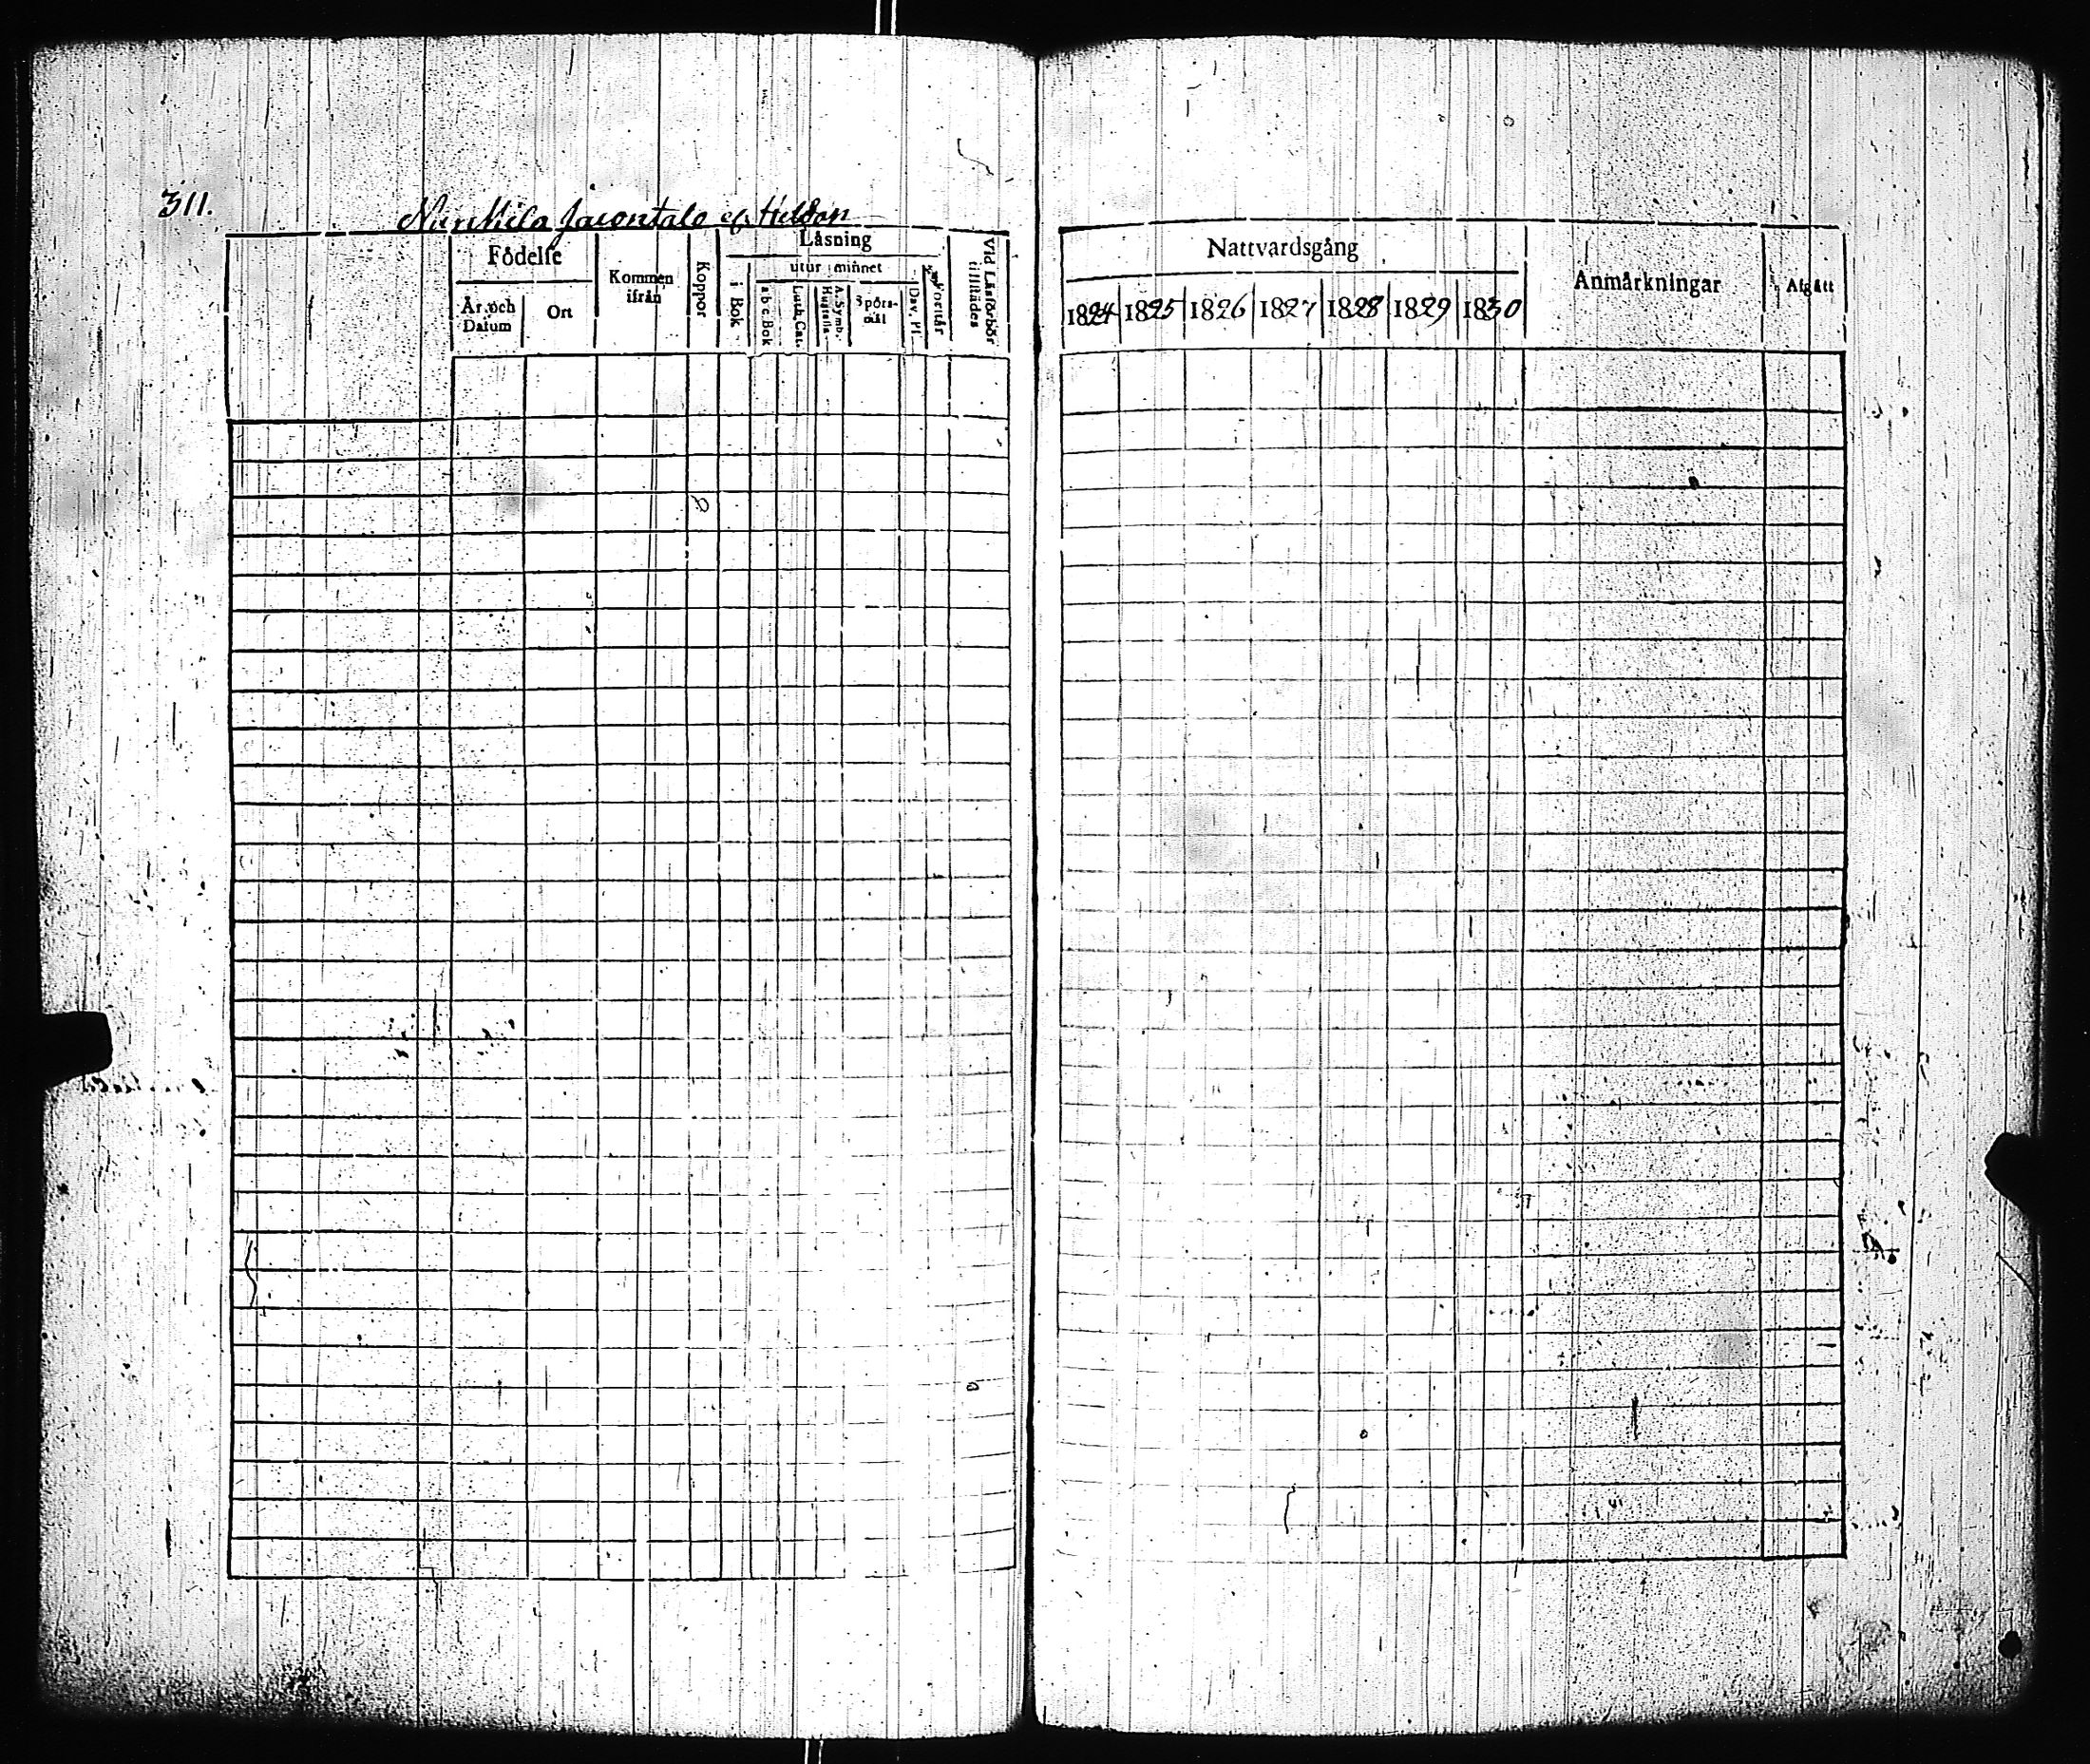 311.
Nurkkila Jacontalo ef. Huldan
Födelse
År och Datum
Ort
Kommen ifrån
Koppor
Läsning
i Bok
utur minnet
a b c Bok
Luth. Cat.
Hustafla
A. Symb.
Spörsmål
Dav. Ps.
Vid Läsförhör tillstädes
Nattvardsgång
1824 1825 1826 1827 1828 1829 1830
Anmärkningar
Afgått